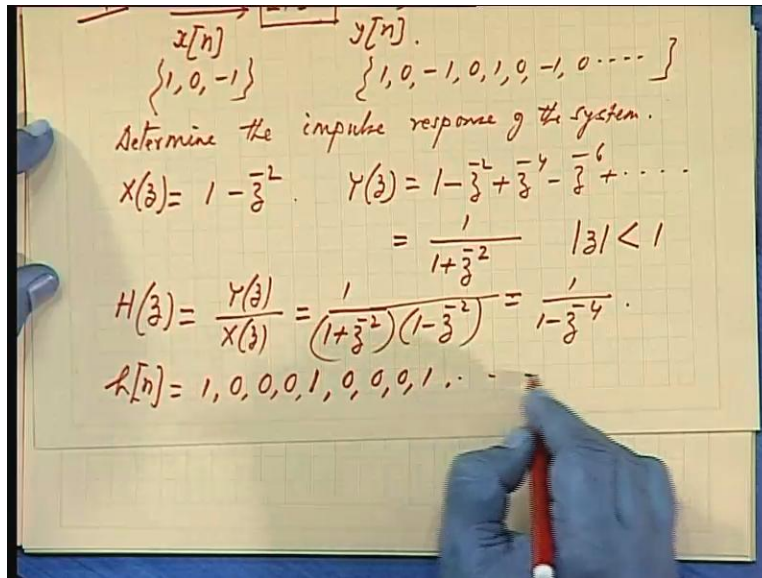 x[n] y[n].
{1, 0, -1} {1, 0, -1, 0, 1, 0, -1, 0 .... }
Determine the impulse response of the system.
X(z) = 1 - z^-2. Y(z) = 1 - z^-2 + z^-4 - z^-6 + ....
= 1/(1+z^-2) |z| < 1
H(z) = Y(z)/X(z) = 1/((1+z^-2)(1-z^-2)) = 1/(1-z^-4).
h[n] = 1, 0, 0, 0, 1, 0, 0, 0, 1, . - -